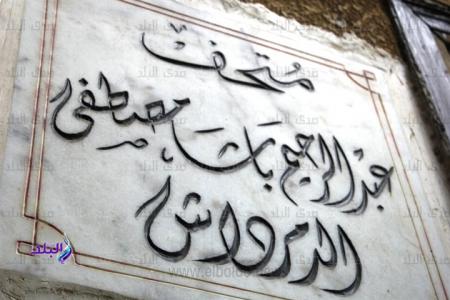 متحف
عبد الرحيم باشا مصطفى
الدمرداش
صدى البلد
www.elbalad